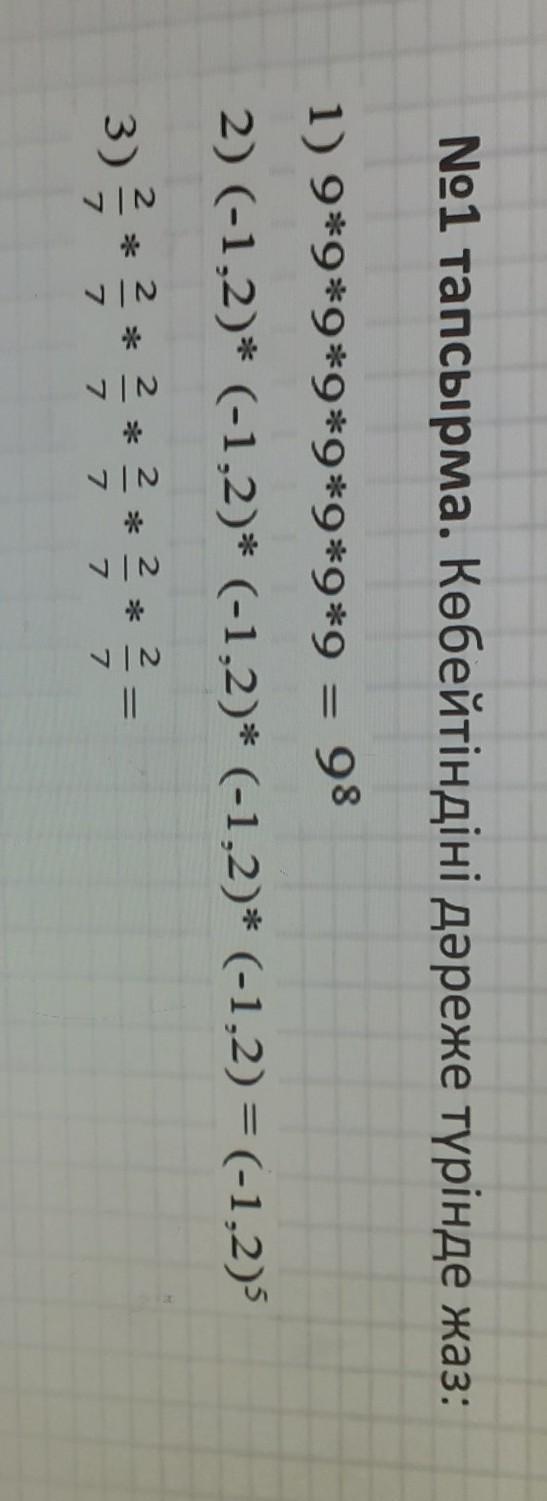 №1 тапсырма. Көбейтіндіні дәреже түрінде жаз:
1) 9*9*9*9*9*9*9*9 = 9⁸
2) (-1,2)* (-1,2)* (-1,2)* (-1,2)* (-1,2) = (-1,2)⁵
3) 2/7 * 2/7 * 2/7 * 2/7 * 2/7 * 2/7 =